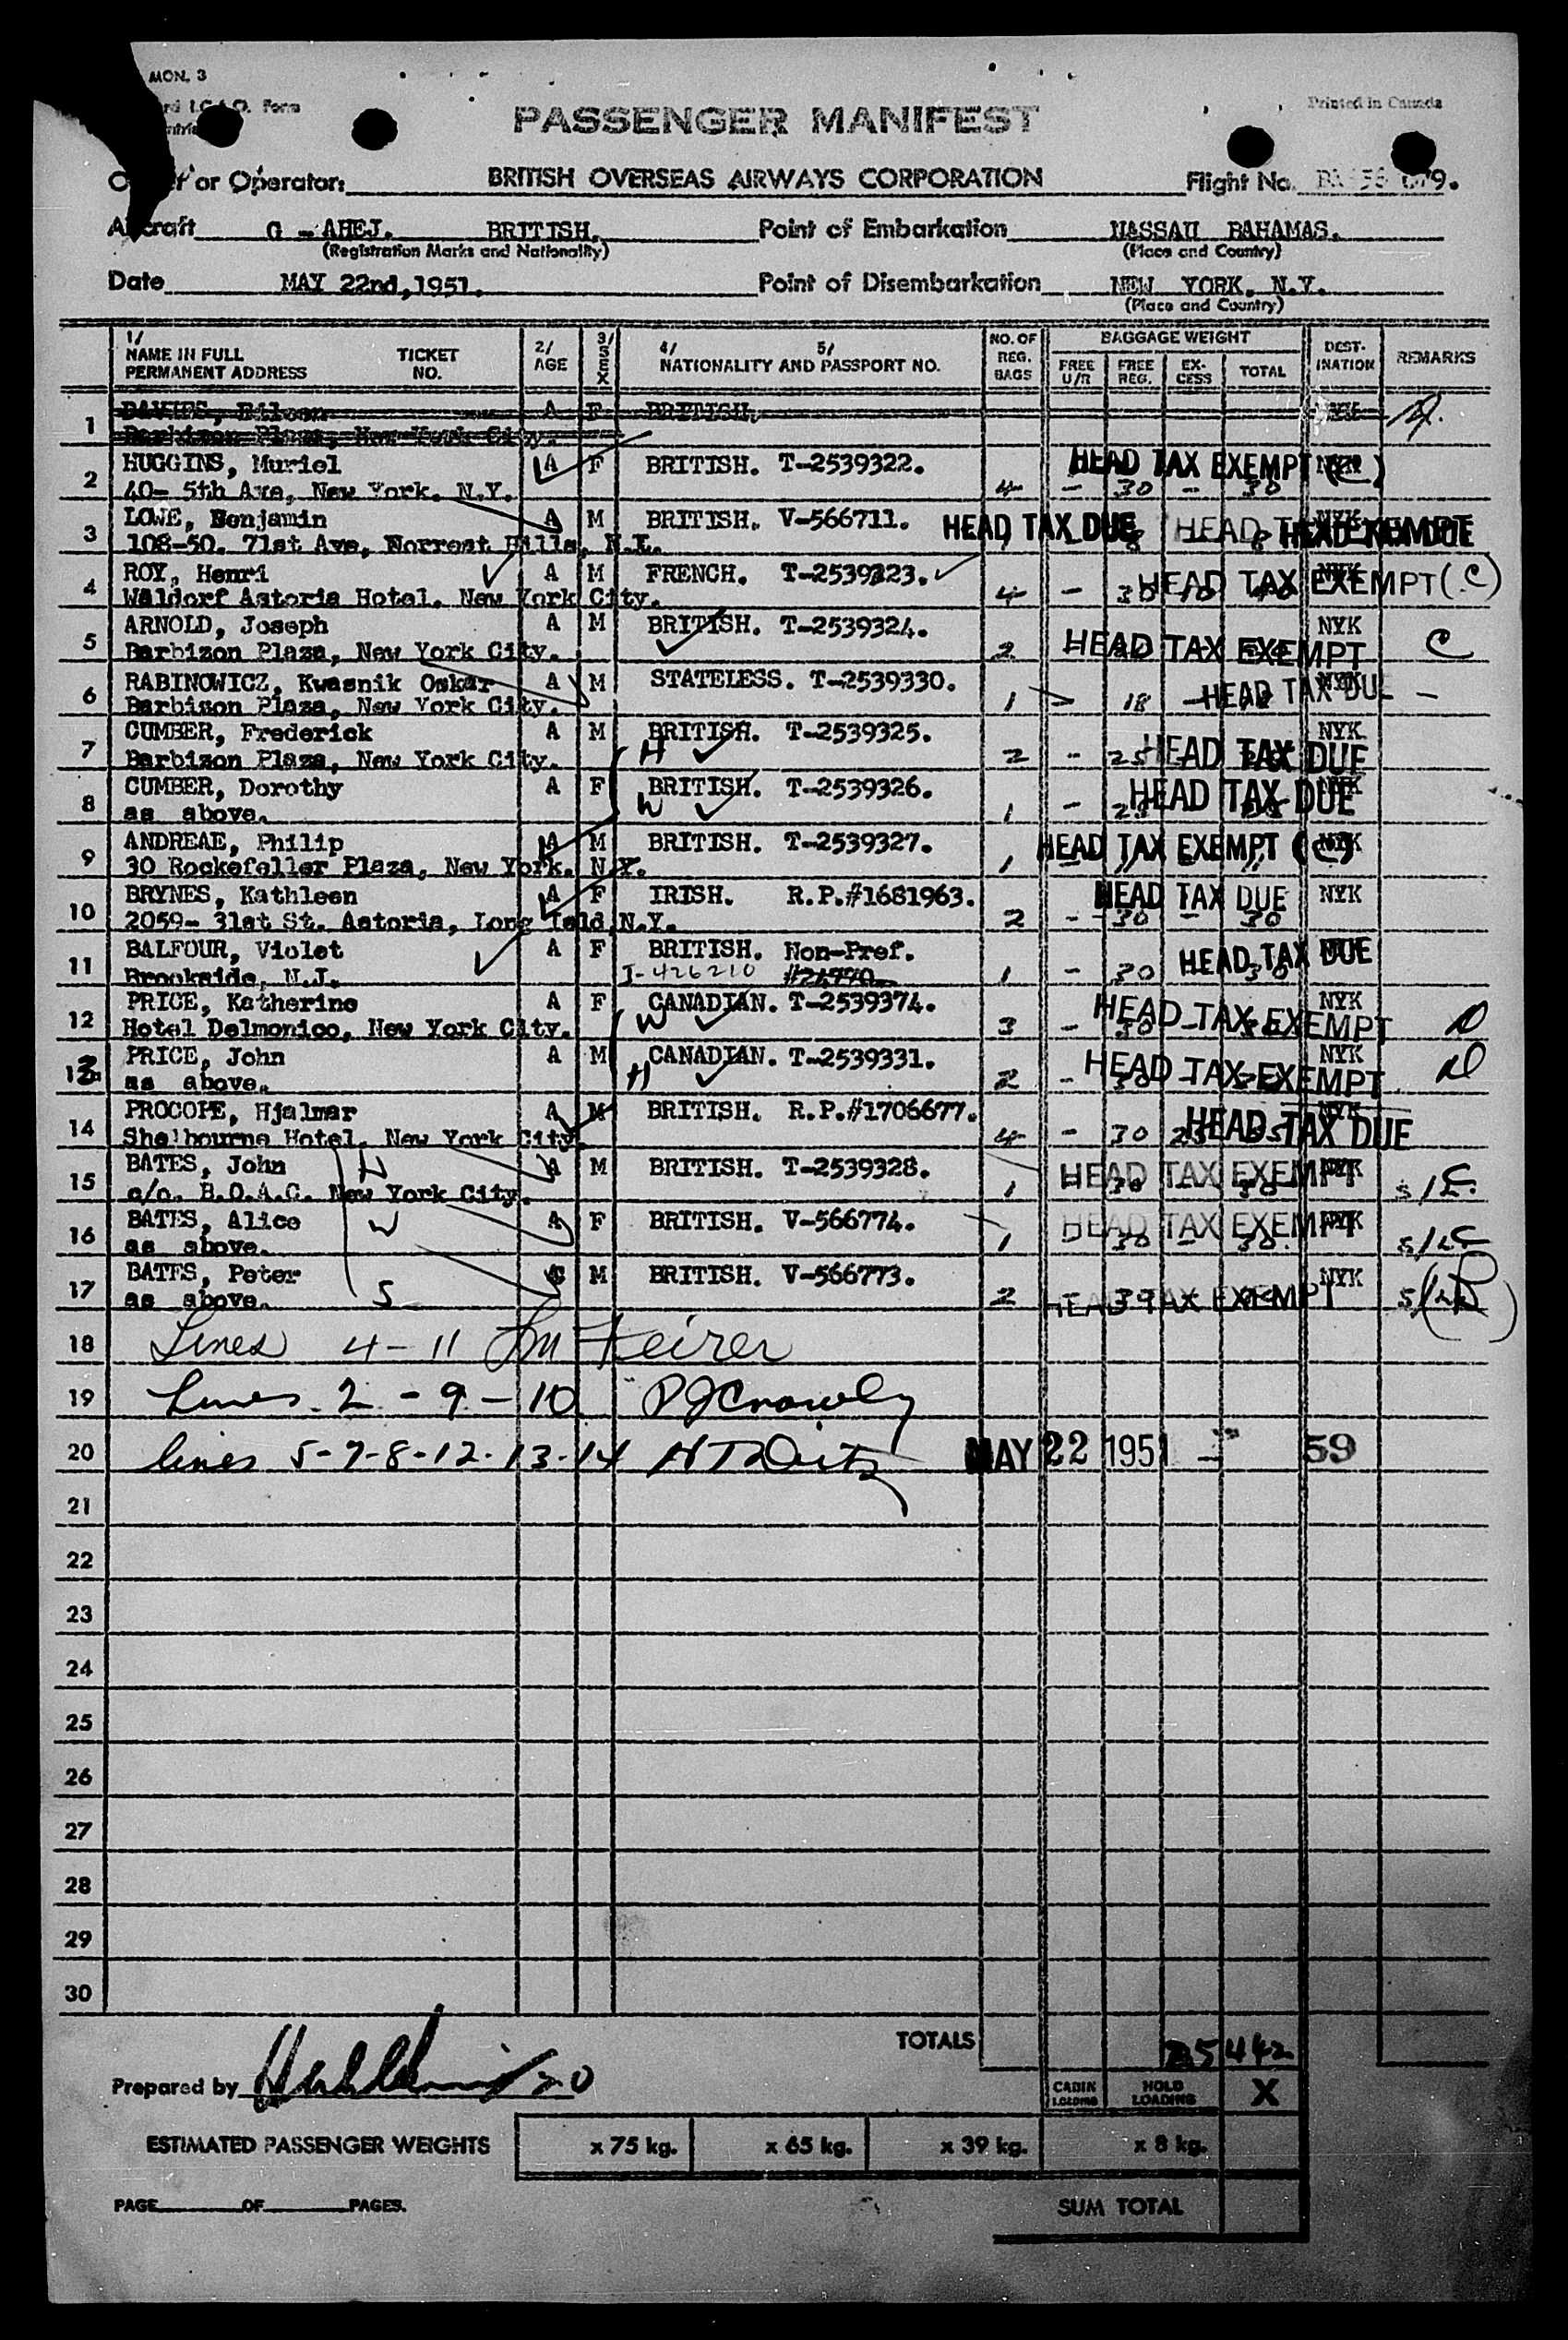 MON. 3
Form
Printed in Canada
PASSENGER MANIFEST
or Operator: BRITISH OVERSEAS AIRWAYS CORPORATION Flight No.
Aircraft G - AHEJ. BRITISH. Point of Embarkation NASSAU BAHAMAS.
(Registration Marks and Nationality) (Place and Country)
Date MAY 22nd,1951. Point of Disembarkation NEW YORK, N.Y.
(Place and Country)
1/ NAME IN FULL PERMANENT ADDRESS TICKET NO. 2/ AGE 3/ SEX 4/ 5/ NATIONALITY AND PASSPORT NO. NO. OF REG. BAGS BAGGAGE WEIGHT FREE U/R FREE REG. EX-CESS TOTAL DEST-INATION REMARKS
1 DAVIES, Eileen A F BRITISH. NYK
Barbizon Plaza, New York City.
2 HUGGINS, Muriel A F BRITISH. T-2539322. HEAD TAX EXEMPT (C) NYK
40- 5th Ave, New York. N.Y. 4 - 30 - 30
3 LOWE, Benjamin A M BRITISH. V-566711. HEAD TAX DUE NYK
108-50. 71st Ave, Norrest Hills, N.Y.
4 ROY, Henri A M FRENCH. T-2539323. HEAD TAX EXEMPT (C) NYK
Waldorf Astoria Hotel. New York City. 4 - 30 10 40
5 ARNOLD, Joseph A M BRITISH. T-2539324. HEAD TAX EXEMPT NYK C
Barbizon Plaza, New York City. 2
6 RABINOWICZ, Kwasnik Oskar A M STATELESS. T-2539330. HEAD TAX DUE NYK
Barbizon Plaza, New York City. 1 - 18 -
7 CUMBER, Frederick A M BRITISH. T-2539325. HEAD TAX DUE NYK
Barbizon Plaza, New York City. H 2 - 25
8 CUMBER, Dorothy A F BRITISH. T-2539326. HEAD TAX DUE NYK
as above. W 1 -
9 ANDREAE, Philip A M BRITISH. T-2539327. HEAD TAX EXEMPT (C) NYK
30 Rockefeller Plaza, New York. N.Y. 1 - 11 - 11
10 BRYNES, Kathleen A F IRISH. R.P.#1681963. HEAD TAX DUE NYK
2059- 31st St. Astoria, Long Isld,N.Y. 2 - 30 - 30
11 BALFOUR, Violet A F BRITISH. Non-Pref. HEAD TAX DUE NYK
Brookside, N.J. I-426210 1 - 30
12 PRICE, Katherine A F CANADIAN. T-2539374. HEAD TAX EXEMPT NYK D
Hotel Delmonico, New York City. W 3 - 30 -
13 PRICE, John A M CANADIAN. T-2539331. HEAD TAX EXEMPT NYK D
as above. H 2 - 30 -
14 PROCOPE, Hjalmar A M BRITISH. R.P.#1706677. HEAD TAX DUE NYK
Shelbourne Hotel. New York City. 4 - 30 25 55
15 BATES, John H A M BRITISH. T-2539328. HEAD TAX EXEMPT NYK
c/o. B.O.A.C. New York City. 1 30
16 BATES, Alice W A F BRITISH. V-566774. HEAD TAX EXEMPT NYK
as above. 1 - 30 - 30
17 BATES, Peter C M BRITISH. V-566773. HEAD TAX EXEMPT NYK
as above. S 2
18 Lines 4-11
19 Lines 2 - 9 - 10 PJ Crowly
20 lines 5-7-8-12-13-14 MAY 22 1951 - 59
21
22
23
24
25
26
27
28
29
30
TOTALS 442
Prepared by
CABIN LOADING HOLD LOADING X
ESTIMATED PASSENGER WEIGHTS x 75 kg. x 65 kg. x 39 kg. x 8 kg.
PAGE OF PAGES. SUM TOTAL